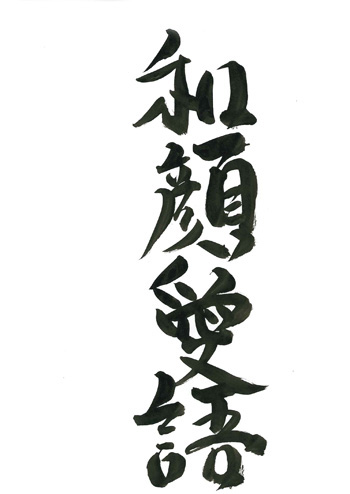 和顔愛語